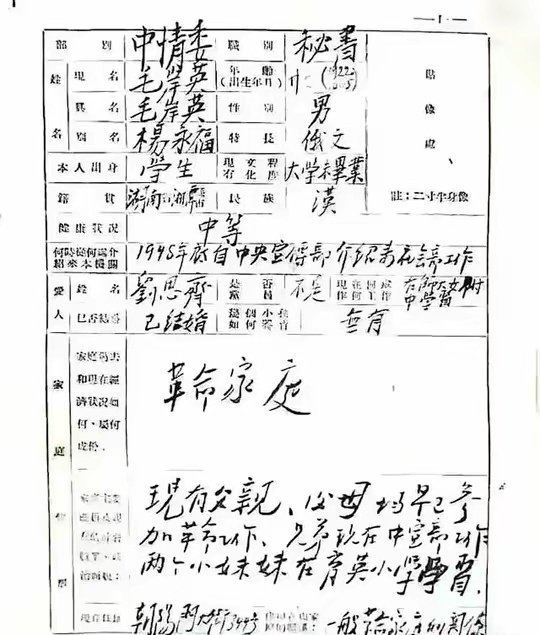 — 1 —
部 别 中情委 職 别 秘書
姓 名 現 名 毛岸英 年 齡(出生年月) (1922
真 名 毛岸英 性 别 男
别 名 楊永福 特 長 俄文
本 人 出 身 學生 現 有 文 化 程 度 大學未畢業
籍 貫 湖南 湘潭 民 族 漢
貼 像 處
註:二寸半身像
健 康 狀 況 中等
何時從何處介紹來本機關 1945年 自中央宣傳部介紹 工作
愛 人 姓 名 劉思齊 是 否 黨 員 不是 現 在 何 處 作 何 工 作 中學 習
已否結婚 已結婚 幾 個 小 孩 如 何 教 育 無有
家 庭 家庭過去和現在經濟狀况如何、屬何成份。 革命家庭
現有父親、父母均早已參
加革命工作、兄弟現在中宣部工作
两个小妹妹在育英小學學習.
現在住址 朝陽門大街 一般革命家庭